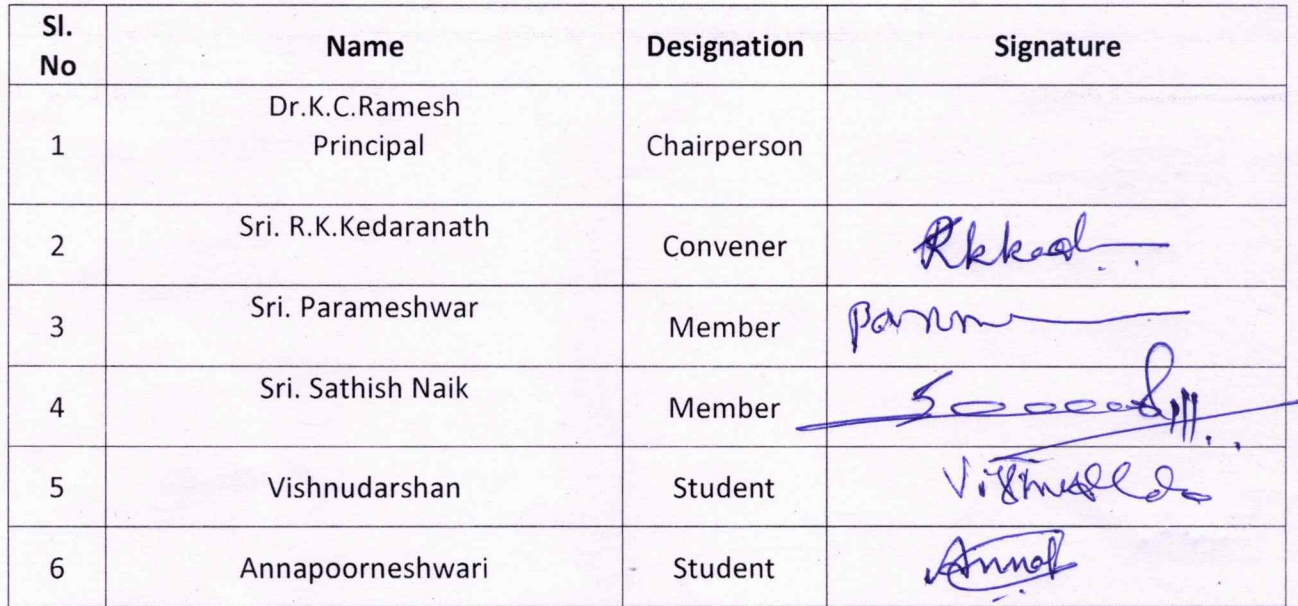 Sl. No Name Designation Signature
1 Dr.K.C.Ramesh Principal Chairperson
2 Sri. R.K.Kedaranath Convener
3 Sri. Parameshwar Member
4 Sri. Sathish Naik Member
5 Vishnudarshan Student
6 Annapoorneshwari Student